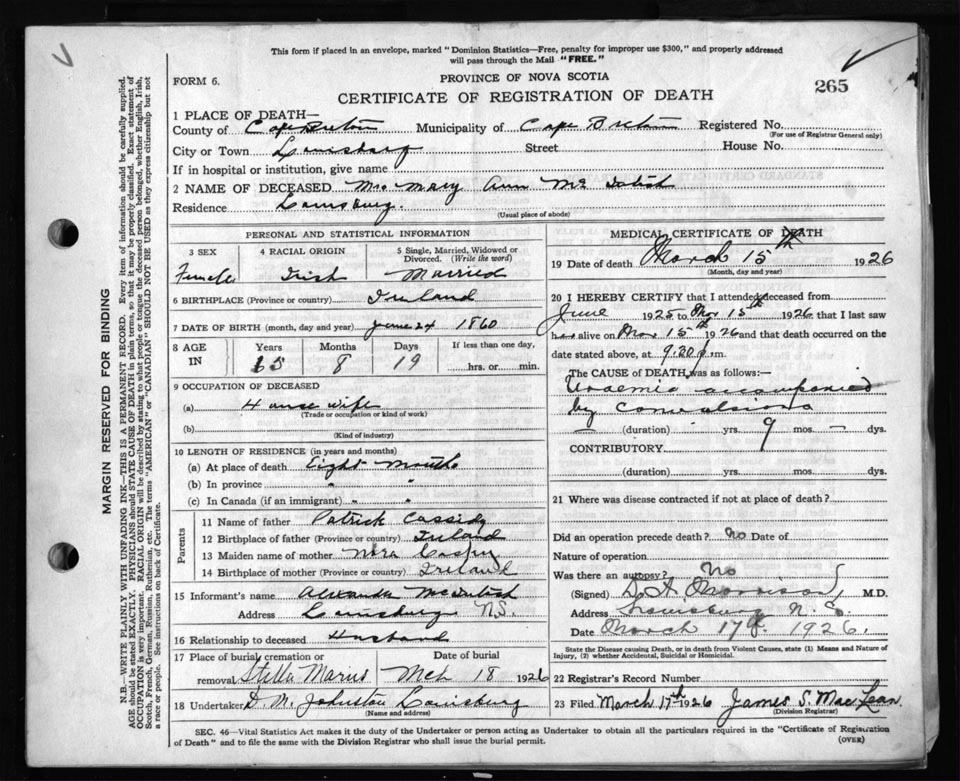 This form if placed in an envelope, marked "Dominion Statistics—Free, penalty for improper use $300," and properly addressed
will pass through the Mail "FREE."
FORM 6.
PROVINCE OF NOVA SCOTIA
265
CERTIFICATE OF REGISTRATION OF DEATH
1 PLACE OF DEATH—
County of Cape Breton Municipality of Cape Breton Registered No.
(For use of Registrar General only)
City or Town Louisburg Street House No.
If in hospital or institution, give name
2 NAME OF DECEASED Mrs Mary Ann Mc
Residence Louisburg.
(Usual place of abode)
PERSONAL AND STATISTICAL INFORMATION
3 SEX 4 RACIAL ORIGIN 5 Single, Married, Widowed or Divorced. (Write the word)
Female Irish Married
6 BIRTHPLACE (Province or country) Ireland
7 DATE OF BIRTH (month, day and year) June 24 1860
8 AGE IN Years Months Days If less than one day,
65 8 19 hrs. or min.
9 OCCUPATION OF DECEASED
(a) House wife
(Trade or occupation or kind of work)
(b)
(Kind of industry)
10 LENGTH OF RESIDENCE (in years and months)
(a) At place of death Eight Months
(b) In province " "
(c) In Canada (if an immigrant) " "
Parents
11 Name of father Patrick Cassidy
12 Birthplace of father (Province or country) Ireland
13 Maiden name of mother Nora
14 Birthplace of mother (Province or country) Ireland
15 Informant's name Alexander
Address Louisburg N.S.
16 Relationship to deceased Husband
17 Place of burial cremation or removal Date of burial
Stella Maris Mch 18 1926
18 Undertaker D. M. Johnston Louisburg
(Name and address)
MEDICAL CERTIFICATE OF DEATH
19 Date of death March 15th 1926
(Month, day and year)
20 I HEREBY CERTIFY that I attended deceased from
June 1925 to Mar 15th 1926 that I last saw
her alive on Mar 15th 1926 and that death occurred on
date stated above, at 9.20 m.
The CAUSE of DEATH was as follows:—
Uraemia accompanied
by convulsions
(duration) — yrs. 9 mos. — dys.
CONTRIBUTORY
(duration) yrs. mos. dys.
21 Where was disease contracted if not at place of death?
Did an operation precede death? No Date of
Nature of operation
Was there an autopsy? No
(Signed) Morrison M.D.
Address Louisburg N.S.
Date March 17th 1926.
State the Disease causing Death, or in death from Violent Causes, state (1) Means and Nature of
Injury, (2) whether Accidental, Suicidal or Homicidal.
22 Registrar's Record Number
23 Filed March 17th 1926 James S. MacLean
(Division Registrar)
SEC. 46—Vital Statistics Act makes it the duty of the Undertaker or person acting as Undertaker to obtain all the particulars required in the "Certificate of Registration
of Death" and to file the same with the Division Registrar who shall issue the burial permit. (OVER)
MARGIN RESERVED FOR BINDING
N.B.—WRITE PLAINLY WITH UNFADING INK—THIS IS A PERMANENT RECORD. Every item of information should be carefully supplied.
AGE should be stated EXACTLY. PHYSICIANS should STATE CAUSE OF DEATH in plain terms, so that it may be properly classified. Exact statement of
OCCUPATION is very important. RACIAL ORIGIN will be described by stating to what people or tongue the deceased person belonged, whether English, Irish,
Scotch, French, German, Russian, Ruthenian, etc. The terms "AMERICAN" or "CANADIAN" SHOULD NOT BE USED as they express citizenship but not
a race or people. See instructions on back of Certificate.